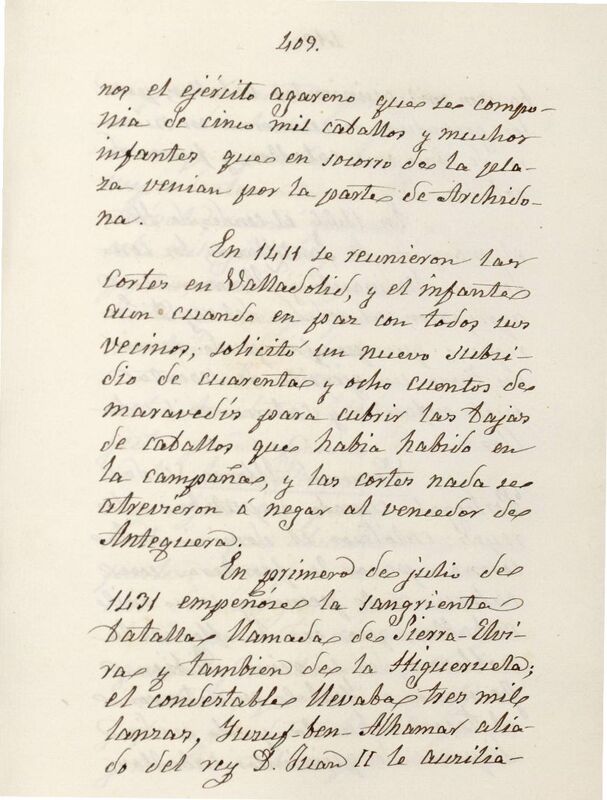 409.
nos el ejército agareno que se compo-
nia de cinco mil caballos y muchos
infantes que en socorro de la pla-
za venian por la parte de Archido-
na.
En 1411 se reunieron las
Cortes en Valladolid, y el infante
aun cuando en paz con todos sus
vecinos, solicitó un nuevo subsi-
dio de cuarenta y ocho cuentos de
maravedís para cubrir las bajas
de caballos que habia habido en
la campaña, y las cortes nada se
atrevieron á negar al vencedor de
Antequera.
En primero de julio de
1431 empeñóse la sangrienta
batalla llamada de Sierra-Elvi-
ra y tambien de la Higueruela;
el condestable llevaba tres mil
lanzas, Yuzuf-ben-Alhamar alia-
do del rey D. Juan II le auxilia-